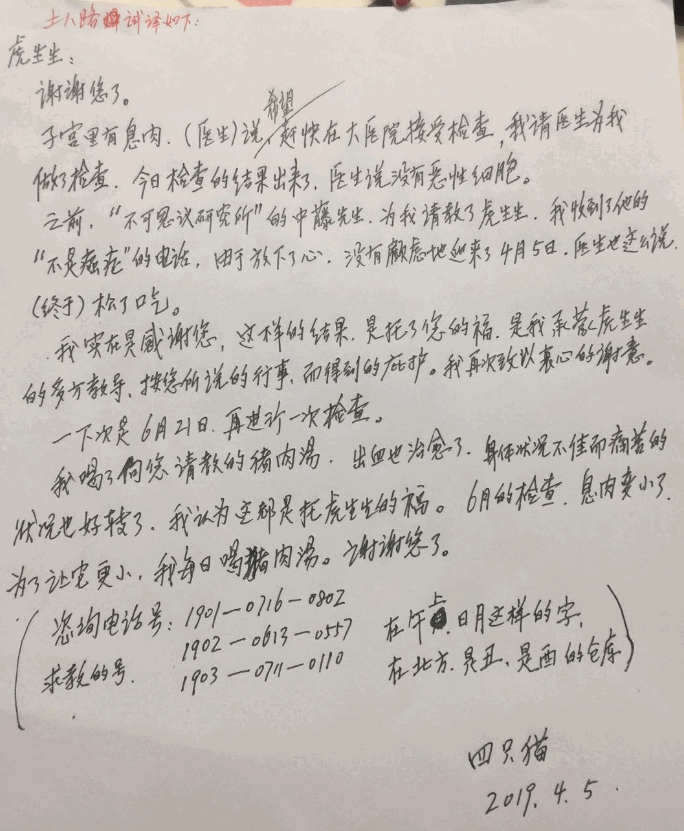 土人路试译如下:
虎生生:
谢谢您了。
希望
子宫里有息肉.(医生)说,赶快在大医院接受检查,我请医生为我
做了检查.今日检查的结果出来了.医生说没有恶性细胞。
之前,“不可思议研究所”的中藤先生.为我请教了虎生生.我收到了他的
“不是癌症”的电话,由于放下了心.没有顾虑地迎来了4月5日.医生也这么说.
(终于)松了口气。
我实在是感谢您,这样的结果.是托了您的福.是我承蒙虎生生
的多方教导.按您所说的行事.而得到的庇护。我再次致以衷心的谢意。
一下次是6月21日.再进行一次检查。
我喝了向您请教的猪肉汤.出血也治愈了.身体状况不佳而痛苦的
状况也好转了.我认为这都是托虎生生的福。6月的检查.息肉变小了.
为了让它更小,我每日喝猪肉汤。谢谢您了。
(咨询电话号:1901-0716-0802
1902-0613-0557 在午上.日月这样的字,
求教的号. 1903-0711-0110 在北方.是丑、是酉的仓库)
四只猫
2019.4.5.